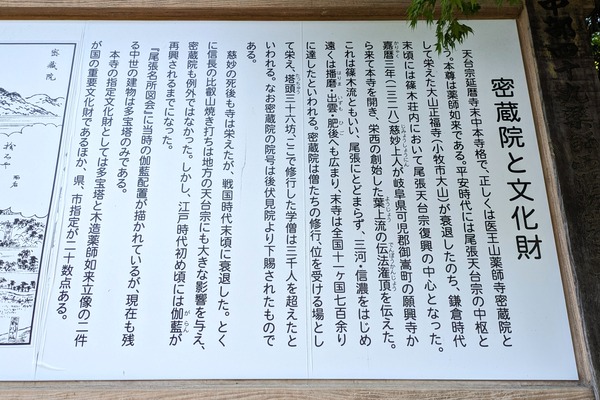 密蔵院と文化財
天台宗延暦寺末中本寺格で、正しくは医王山薬師寺密蔵院と
う。本尊は薬師如来である。平安時代には尾張天台宗の中枢と
して栄えた大山正福寺(小牧市大山)が衰退したのち、鎌倉時代
末頃には篠木荘内において尾張天台宗復興の中心となった。
嘉暦三年(一三二八)慈妙上人が岐阜県可児郡御嵩町の願興寺か
ら来て本寺を開き、栄西の創始した葉上流の伝法潅頂を伝えた。
これは篠木流ともいい、尾張にとどまらず、三河・信濃をはじめ
遠くは播磨・出雲・肥後へも広まり、末寺は全国十一ヶ国七百余り
に達したといわれる。密蔵院は僧たちの修行、位を受ける場とし
て栄え、塔頭三十六坊、ここで修行した学僧は三千人を超えたと
いわれる。なお密蔵院の院号は後伏見院より下賜されたもので
ある。
慈妙の死後も寺は栄えたが、戦国時代末頃に衰退した。とく
に信長の比叡山焼き打ちは地方の天台宗にも大きな影響を与え、
密蔵院も例外ではなかった。しかし、江戸時代初め頃には伽藍が
再興されるまでになった。
『尾張名所図会』に当時の伽藍配置が描かれているが、現在も残
る中世の建物は多宝塔のみである。
本寺の指定文化財としては多宝塔と木造薬師如来立像の二件
が国の重要文化財であるほか、県、市指定が二十数点ある。
密蔵院